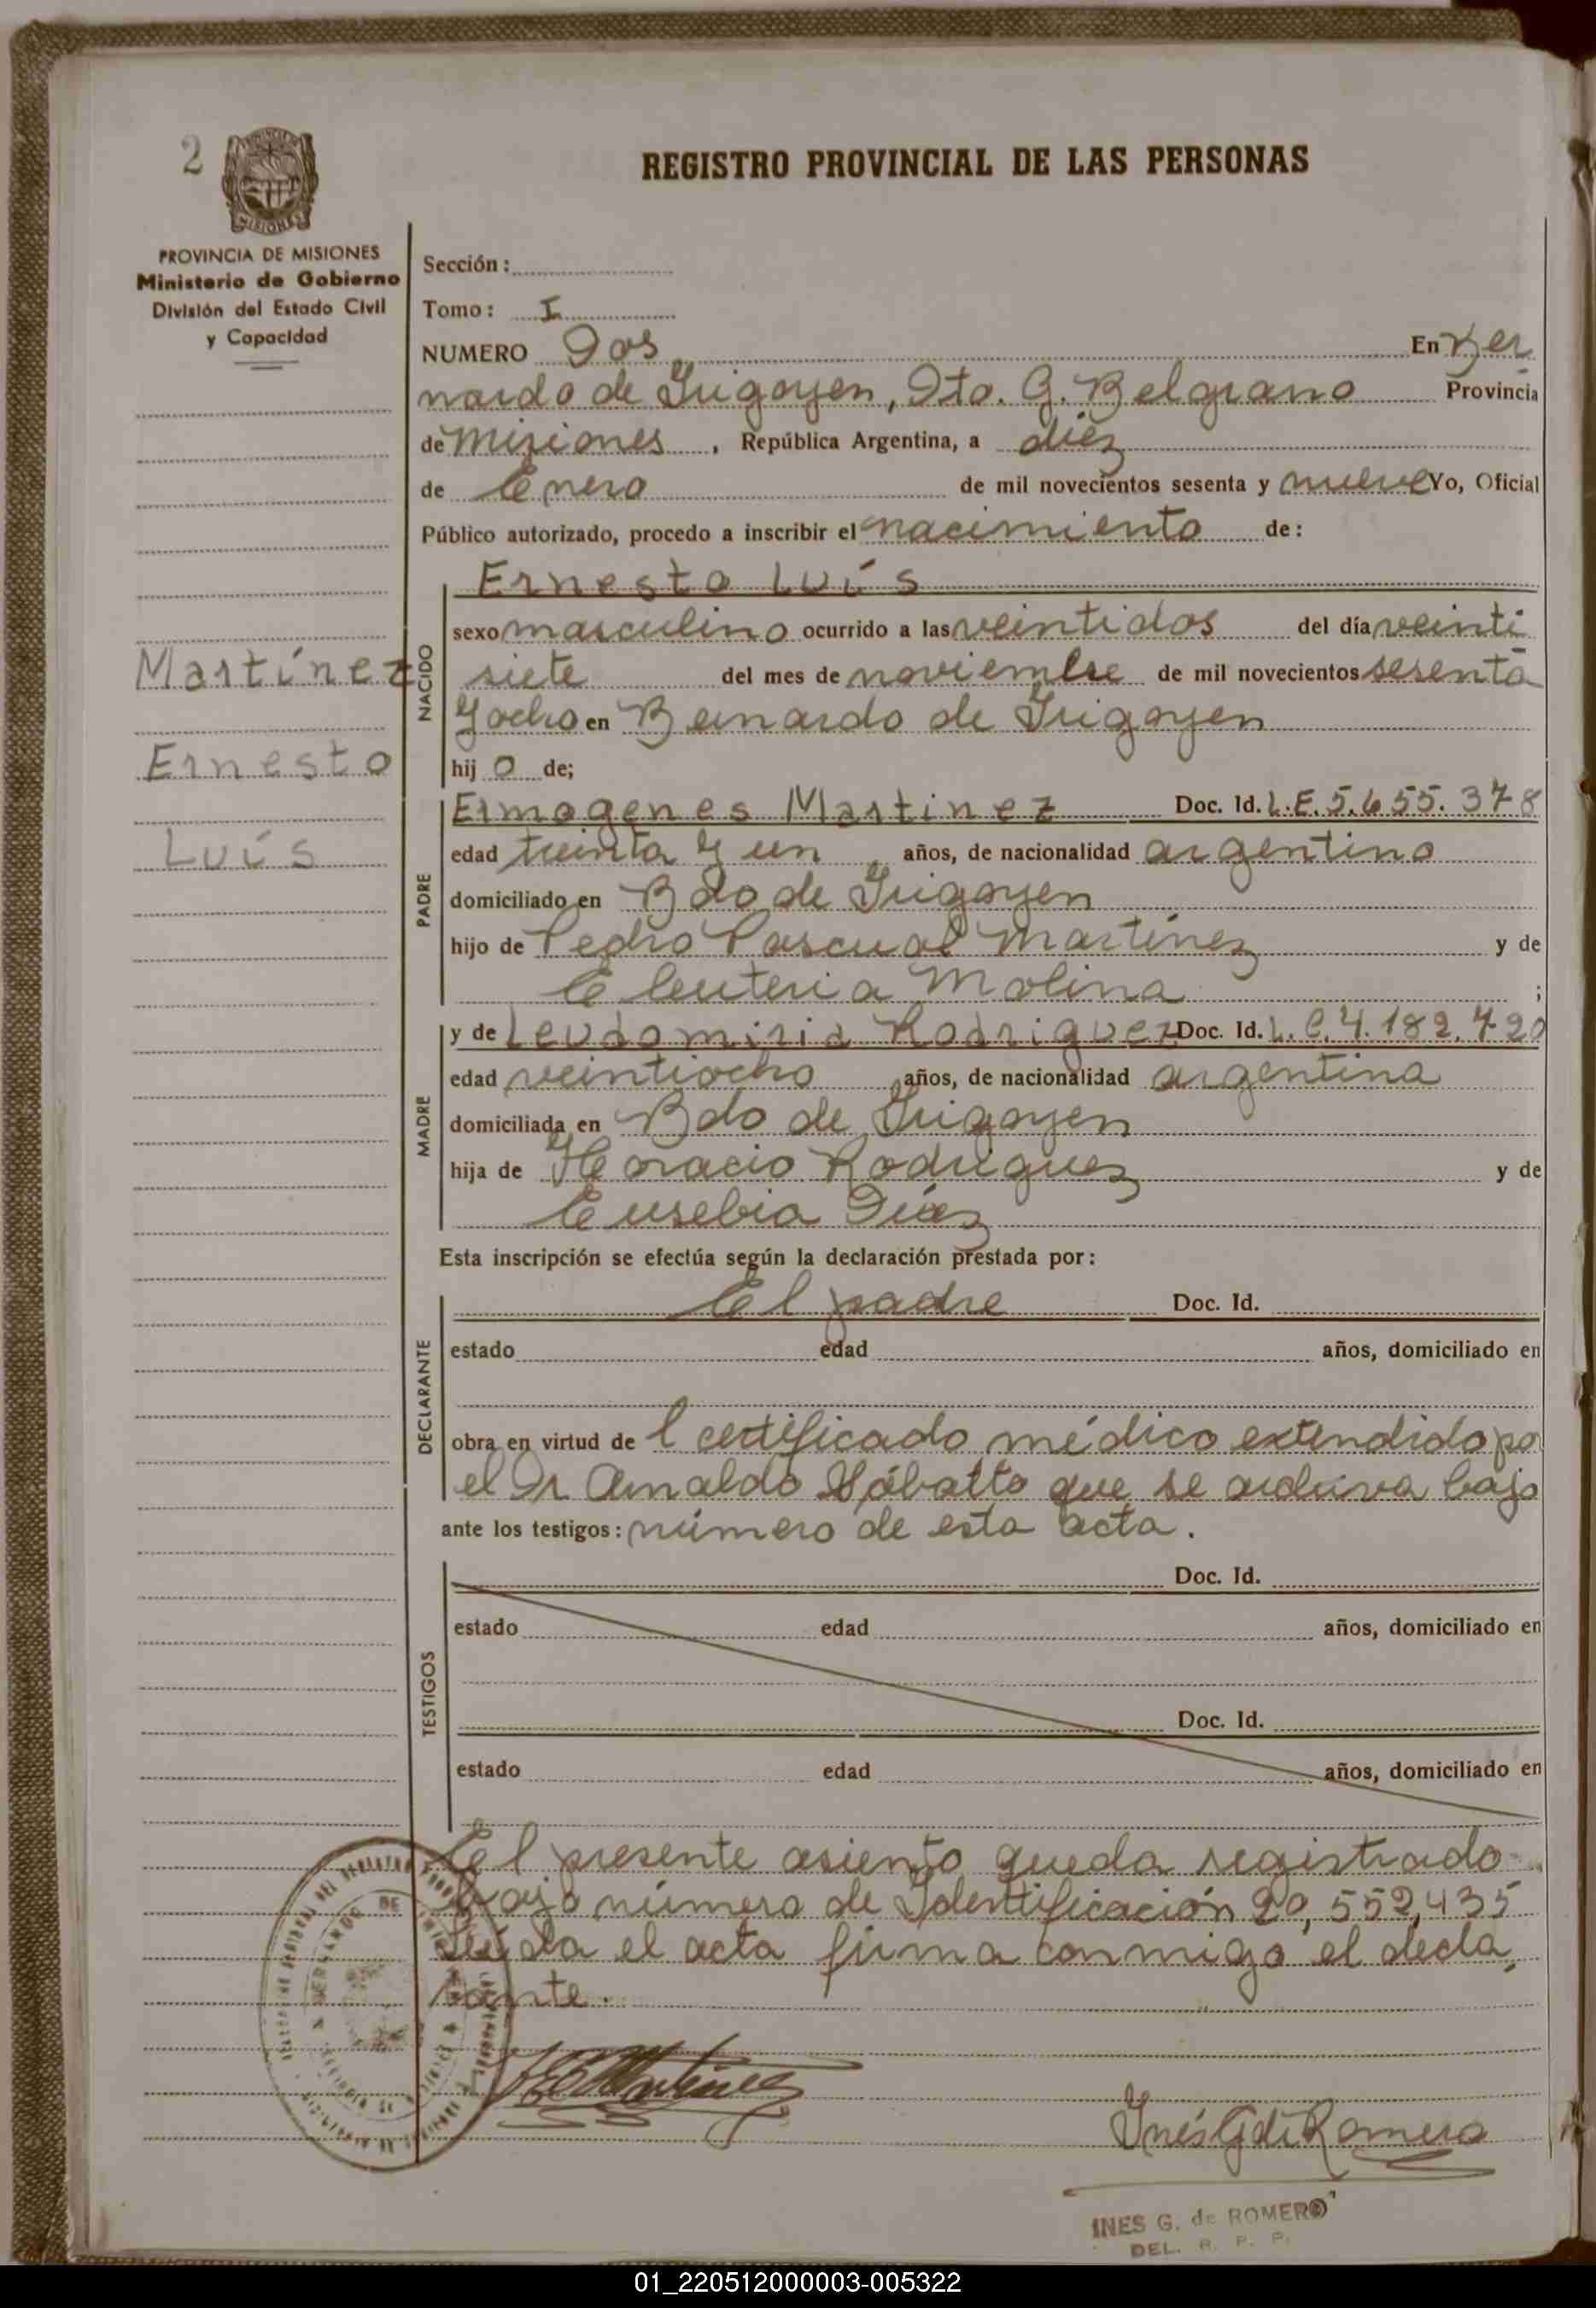 2
REGISTRO PROVINCIAL DE LAS PERSONAS
MISIONES
PROVINCIA DE MISIONES
Ministerio de Gobierno
División del Estado Civil
y Capacidad
Sección:
Tomo: I
NUMERO Dos En Ber
nardo de Irigoyen, Dto. G. Belgrano Provincia
de Misiones, República Argentina, a diez
de Enero de mil novecientos sesenta y nueve Yo, Oficial
Público autorizado, procedo a inscribir el nacimiento de:
Martínez
Ernesto
Luís
NACIDO
Ernesto Luís
sexo masculino ocurrido a las veintidos del día veinti
siete del mes de noviembre de mil novecientos sesenta
y ocho en Bernardo de Irigoyen
hij o de;
PADRE
Ermogenes Martinez Doc. Id. L.E. 5.655.378
edad treinta y un años, de nacionalidad argentino
domiciliado en Bdo de Irigoyen
hijo de Pedro Pascual Martínez y de
Eleuteria Molina ;
MADRE
y de Leudomiria Rodriguez Doc. Id. L.C. 4.182.720
edad veintiocho años, de nacionalidad argentina
domiciliada en Bdo de Irigoyen
hija de Horacio Rodriguez y de
Eusebia Díaz
Esta inscripción se efectúa según la declaración prestada por:
DECLARANTE
El padre Doc. Id.
estado edad años, domiciliado en
obra en virtud de l certificado médico extendido po
el Dr Arnaldo Sábatto que se archiva bajo
ante los testigos: número de esta acta.
TESTIGOS
Doc. Id.
estado edad años, domiciliado en
Doc. Id.
estado edad años, domiciliado en
El presente asiento queda registrado
bajo número de Identificación 20,552,435
Leída el acta firma conmigo el decla
rante.
Martinez
Inés G de Romero
INES G. de ROMERO
DEL. R. P. P.
01_220512000003-005322